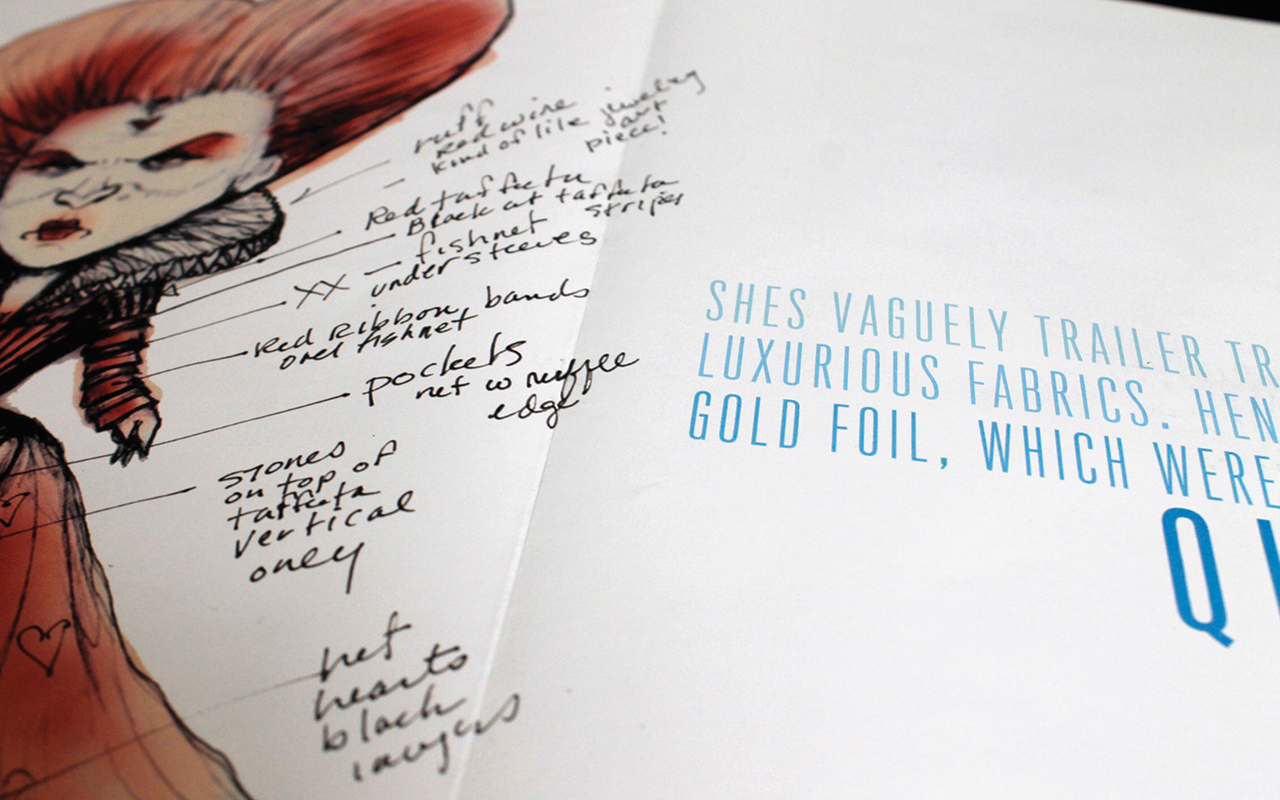 ruff
Red wire
kind of like jewelry
art
piece!
Red taffeta
Black at taffeta
stripes
XX — fishnet
undersleeves
Red Ribbon bands
over fishnet
pockets
net w ruffle
edge
stones
on top of
taffeta
vertical
only
net
hearts
black
SHES VAGUELY TRAILER TR
LUXURIOUS FABRICS. HEN
GOLD FOIL, WHICH WERE
Q